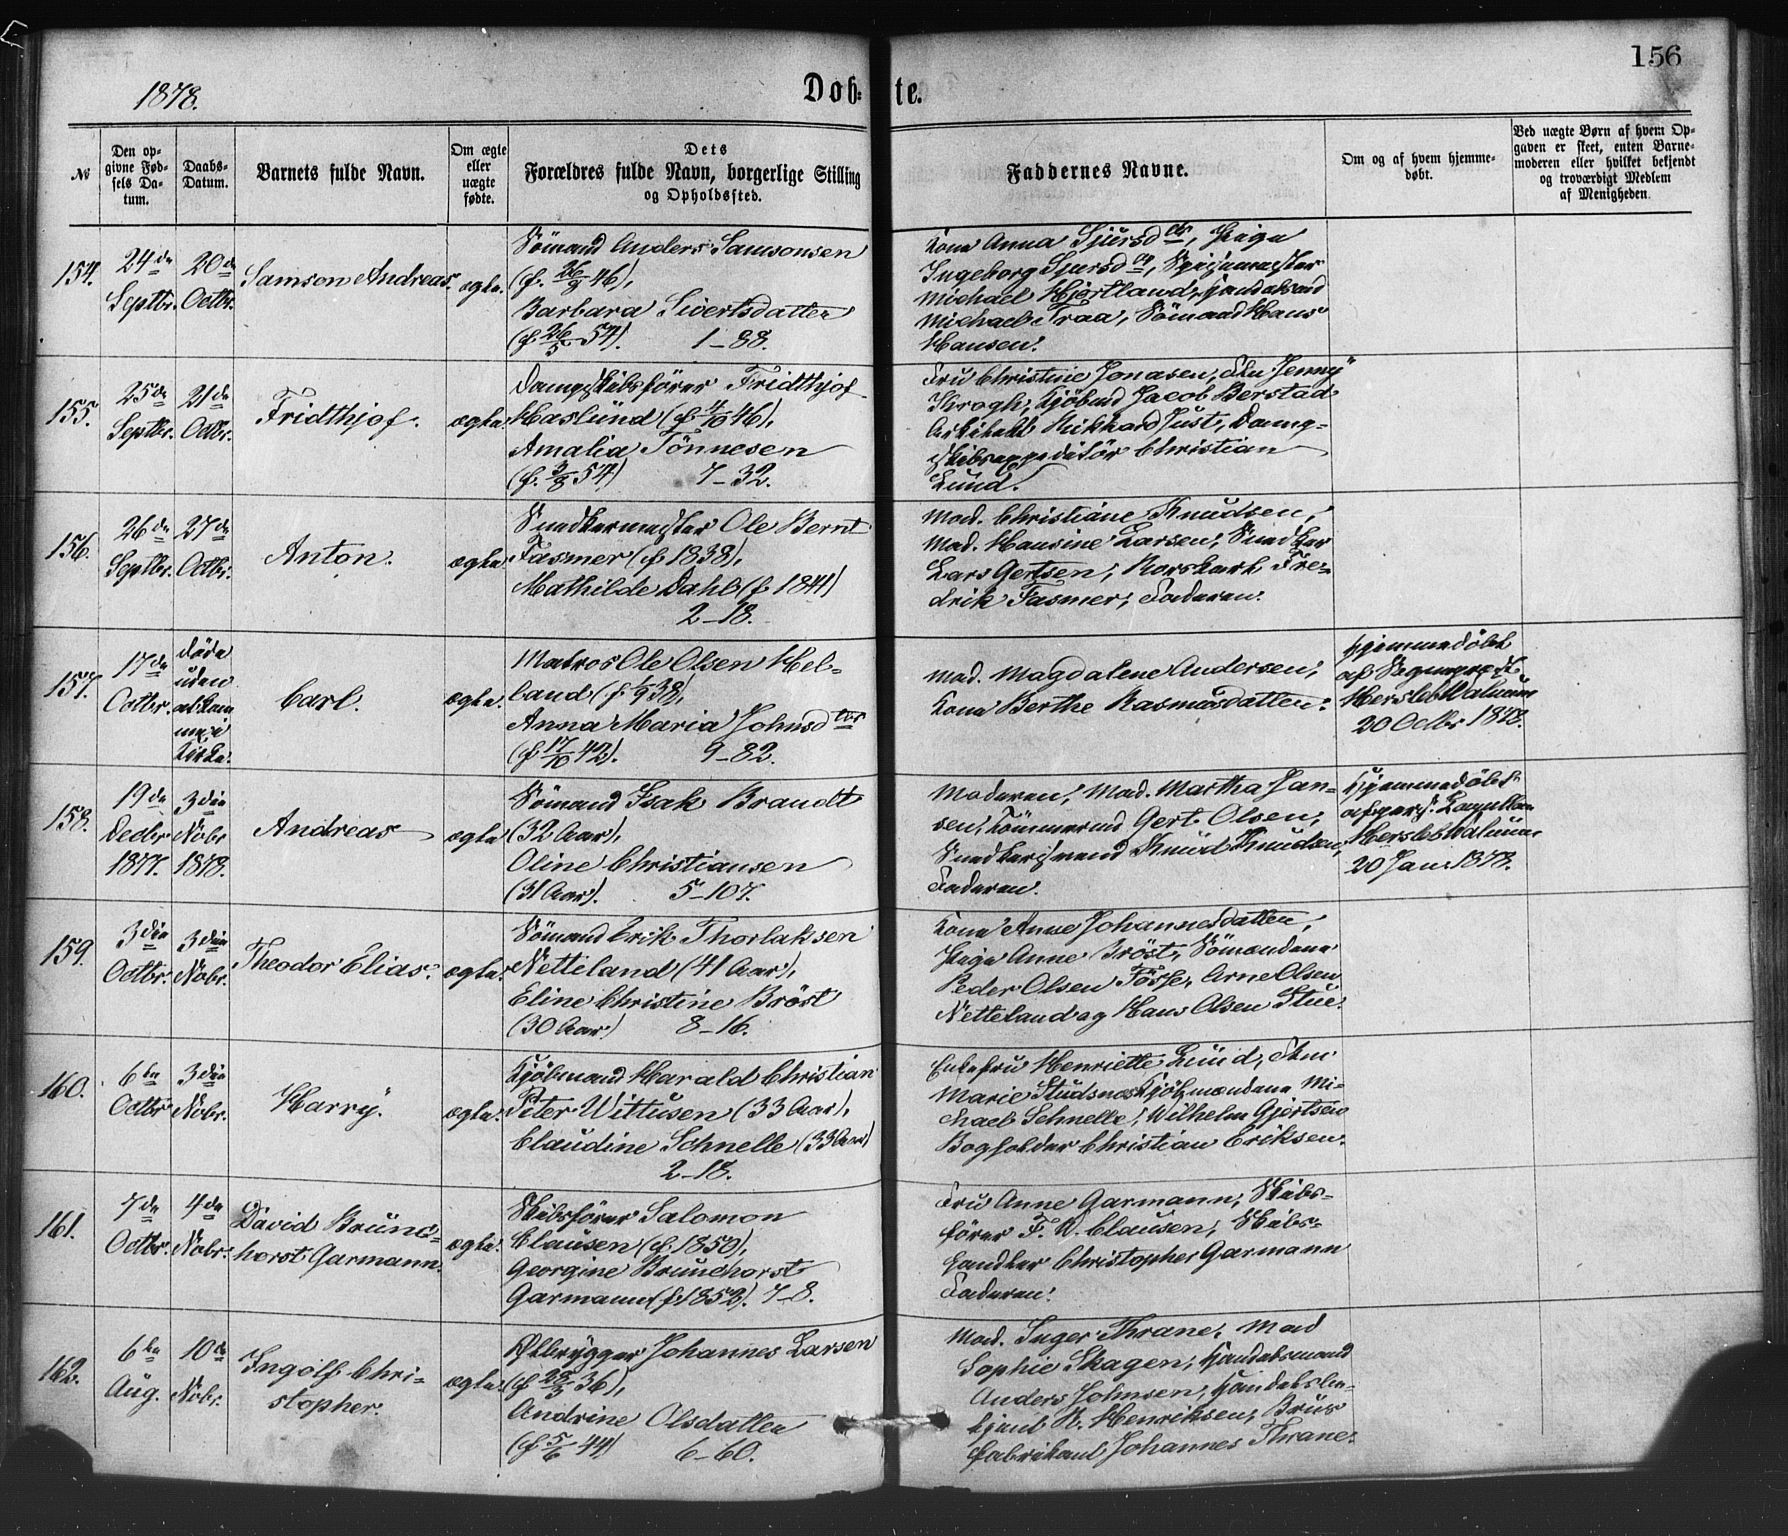 156
1878.
Døb-te.
№
Den op-
givne Fød-
sels Da-
tum.
Daabs-
Datum.
Barnets fulde Navn.
Om ægte
eller
uægte
fødte.
Dets
Forældres fulde Navn, borgerlige Stilling
og Opholdssted.
Faddernes Navne.
Om og af hvem hjemme-
døbt.
Ved uægte Børn af hvem Op-
gaven er skeet, enten Barne-
moderen eller hvilket bekjendt
og troværdigt Medlem
af Menigheden.
154.
24de
Septbr.
20de
Octbr.
Samson Andreas.
ægte.
Sømand Anders Samsonsen
(f. 26/9 46),
Barbara Sivertsdatter
(f. 26/5 54). 1-88.
Kone Anna Sjursdtr, Pige
Ingeborg Sjursdtr, Spisemester
Michael Hjortland, Handelsmd
Michael Traa, Sømand Hans
Hansen.
155.
25de
Septbr.
21de
Octbr.
Fridthjof.
ægte.
Dampskibsfører Fridthjof
Haslund (f. 4/10 46),
Amalia Tönnesen
(f. 3/8 54) 7-32.
Fru Christine Jonasen, Frk Jenny
Krogh, Kjøbmd Jacob Berstad
Arkitekt Rikhard Just, Damp-
skibsexpeditör Christian
Lund.
156.
26de
Septbr.
27de
Octbr.
Anton.
ægte.
Snedkermester Ole Bernt
Fasmer (f. 1838),
Mathilde Dahl (f. 1841)
2-18.
Mad. Christiane Knudsen,
Mad. Hansine Larsen, Snedker
Lars Gertsen, Fre-
drik Fasmer, Faderen.
157.
17de
Octbr.
døde
uden
at kom
me i
Kirke.
Carl.
ægte.
Matros Ole Olsen Hel-
land (f. 1/9 38),
Anna Maria Johnsdter
(f. 17/10 42). 9-82.
Mad. Magdalene Andersen,
Kone Berthe Rasmusdatter.
Hjemmedøbt
af Sognepræst
Hersleb Walnum
20 Octbr 1878.
158.
19de
Decbr
1877.
3die
Nobr
1878.
Andreas
ægte
Sömand Isak Brandt
(32 Aar),
Oline Christiansen
(31 Aar). 5-107.
Moderen, Mad. Martha Jan-
sen, Tømmermd Gert Olsen,
Snedkersvend Knud Knudsen,
Faderen.
Hjemmedøbt
af pers. Kapellan
Hersleb Walnum
20 Jan. 1878.
159.
3die
Octbr.
3die
Nobr.
Theodor Elias.
ægte.
Sömand Erik Thorlaksen
Netteland (41 Aar),
Eline Christine Bröst
(30 Aar) 8-16.
Kone Anne Johannesdatter,
Pige Anne Bröst, Sömændene
Peder Olsen Fosse, Arne Olsen
Netteland og Hans Olsen Stue.
160.
6te
Octbr.
3die
Nobr.
Harry.
ægte.
Kjöbmand Harald Christian
Peter Wittusen (33 Aar),
Claudine Schnelle (33 Aar)
2-18.
Enkefru Henriette Lund, Frk.
Marie Kjöbmændene Mi-
chael Schnelle, Wilhelm Gjertsen
Bogholder Christian Eriksen.
161.
7de
Octbr.
4de
Nobr.
David Brunc-
horst Garmann.
ægte.
Skibsförer Salomon
Clausen (f. 1850),
Georgine Brunchorst
Garmann (f. 1852). 7-8.
Fru Anne Garmann, Skibs-
förer F. D. Clausen, Skibs-
handler Christopher Garmann
Faderen.
162.
6te
Aug.
10de
Nobr.
Ingolf Chri-
stopher.
ægte.
Ølbrygger Johannes Larsen
(f. 28/3 36),
Andrine Olsdatter
(f. 5/6 44) 6-60.
Mad. Inger Thrane, Mad
Sophie Skagen, Handelsmand
Anders Johnsen, Handelsbe-
tjent N. Henriksen, Brus-
fabrikant Johannes Thrane.